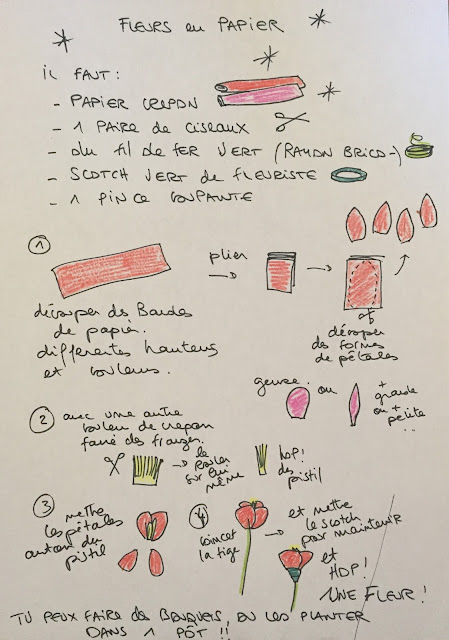 FLEURS en PAPIER
il FAUT :
- PAPIER CREPON
- 1 PAIRE de CISEAUX
- du fil de FER VERT (RAYON BRICO-)
- SCOTCH VERT de FLEURISTE
- 1 PINCE COUPANTE
①
plier
découper des Bandes
de papier.
différentes hauteurs
et couleurs.
découper
des formes
de pétales
genre.
ou
+ grande
ou +
petite
...
② avec une autre
couleur de crepon
faire des franges.
le
rouler
sur lui
même
HOP!
des
pistil
③ mettre
les pétales
autour du
pistil
④
coincer
la tige
et mettre
le scotch
pour maintenir
et
HOP!
UNE FLEUR !
TU PEUX FAIRE des BOUQUETS, ou les PLANTER
DANS 1 PÔT !!